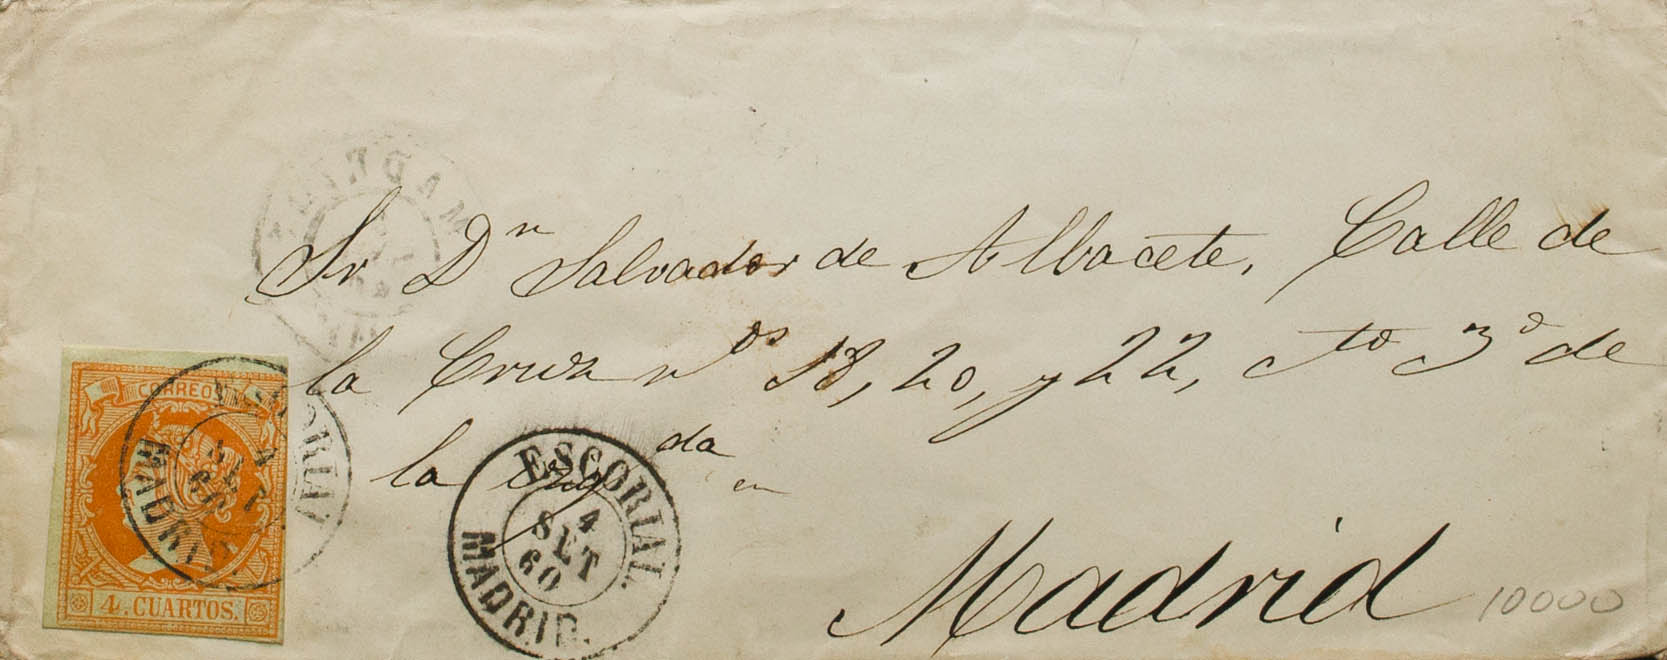 Sr Dn Salvador de Albacete, Calle de
la Cruz nos 18, 20, y 22, cto 3o de
la izqda en
Madrid
10000
CORREOS
4. CUARTOS.
ESCORIAL
4
SET
60
MADRID
ESCORIAL.
4
SET
60
MADRID.